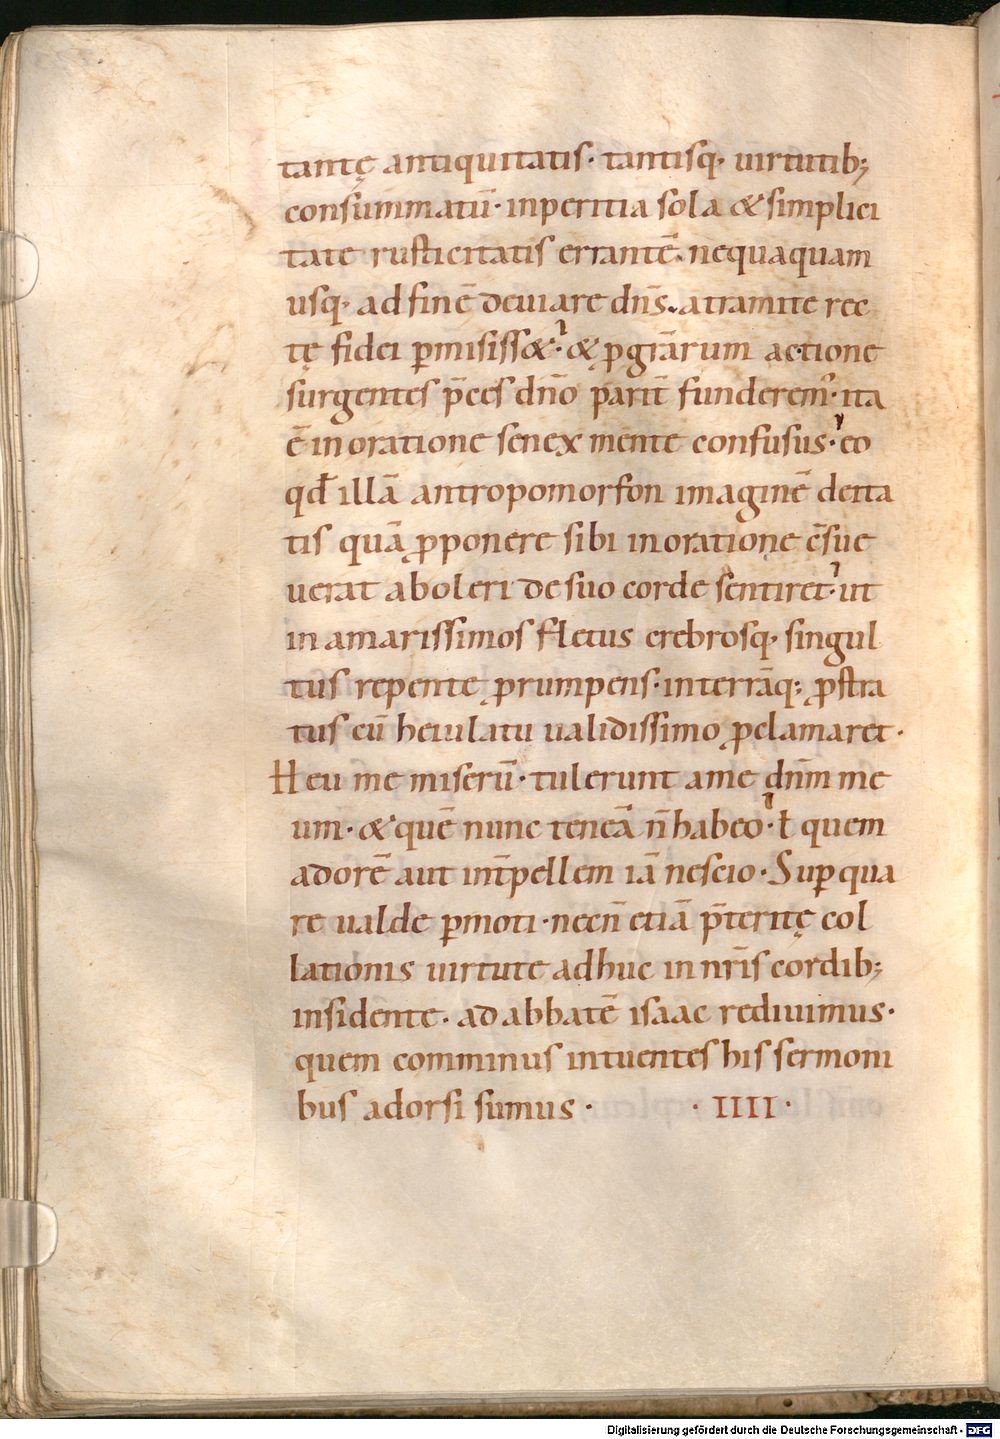 tantę antiquitatis· tantisq· uirtutib;
consummatū· inperitia sola & simplici
tate rusticitatis errantē· nequaquam
usq· ad finē deuiare dn̄s· a tramite rec
tę fidei ꝑmisiss&· & ꝓ gr̄arum actione
surgentes p̄ces dn̄o parit̄ funderem᾽· ita
ē in oratione senex mente confusus· eo
qđ illā antropomorfon imaginē deita
tis quā ꝓponere sibi in orationę c̄sue
uerat aboleri de suo corde sentiret· ut
in amarissimos fletus crebrosq· singul
tus repente ꝓrumpens· in terrāq; ꝓstra
tus cū heiulatu ualidissimo ꝓclamaret·
Heu me miserū· tulerunt a me dn̄m me
um· & quē nunc teneā n̄ habeo· ł quem
adorē aut int̄pellem iā nescio· Suꝑ qua
re ualde ꝑmoti· necn̄ etiā p̄teritę col
lationis uirtute adhuc in nr̄is cordib;
insidente· ad abbatē isaac rediuimus·
quem comminus intuentes his sermoni
bus adorsi sumus · · IIII ·
Digitalisierung gefördert durch die Deutsche Forschungsgemeinschaft - DFG